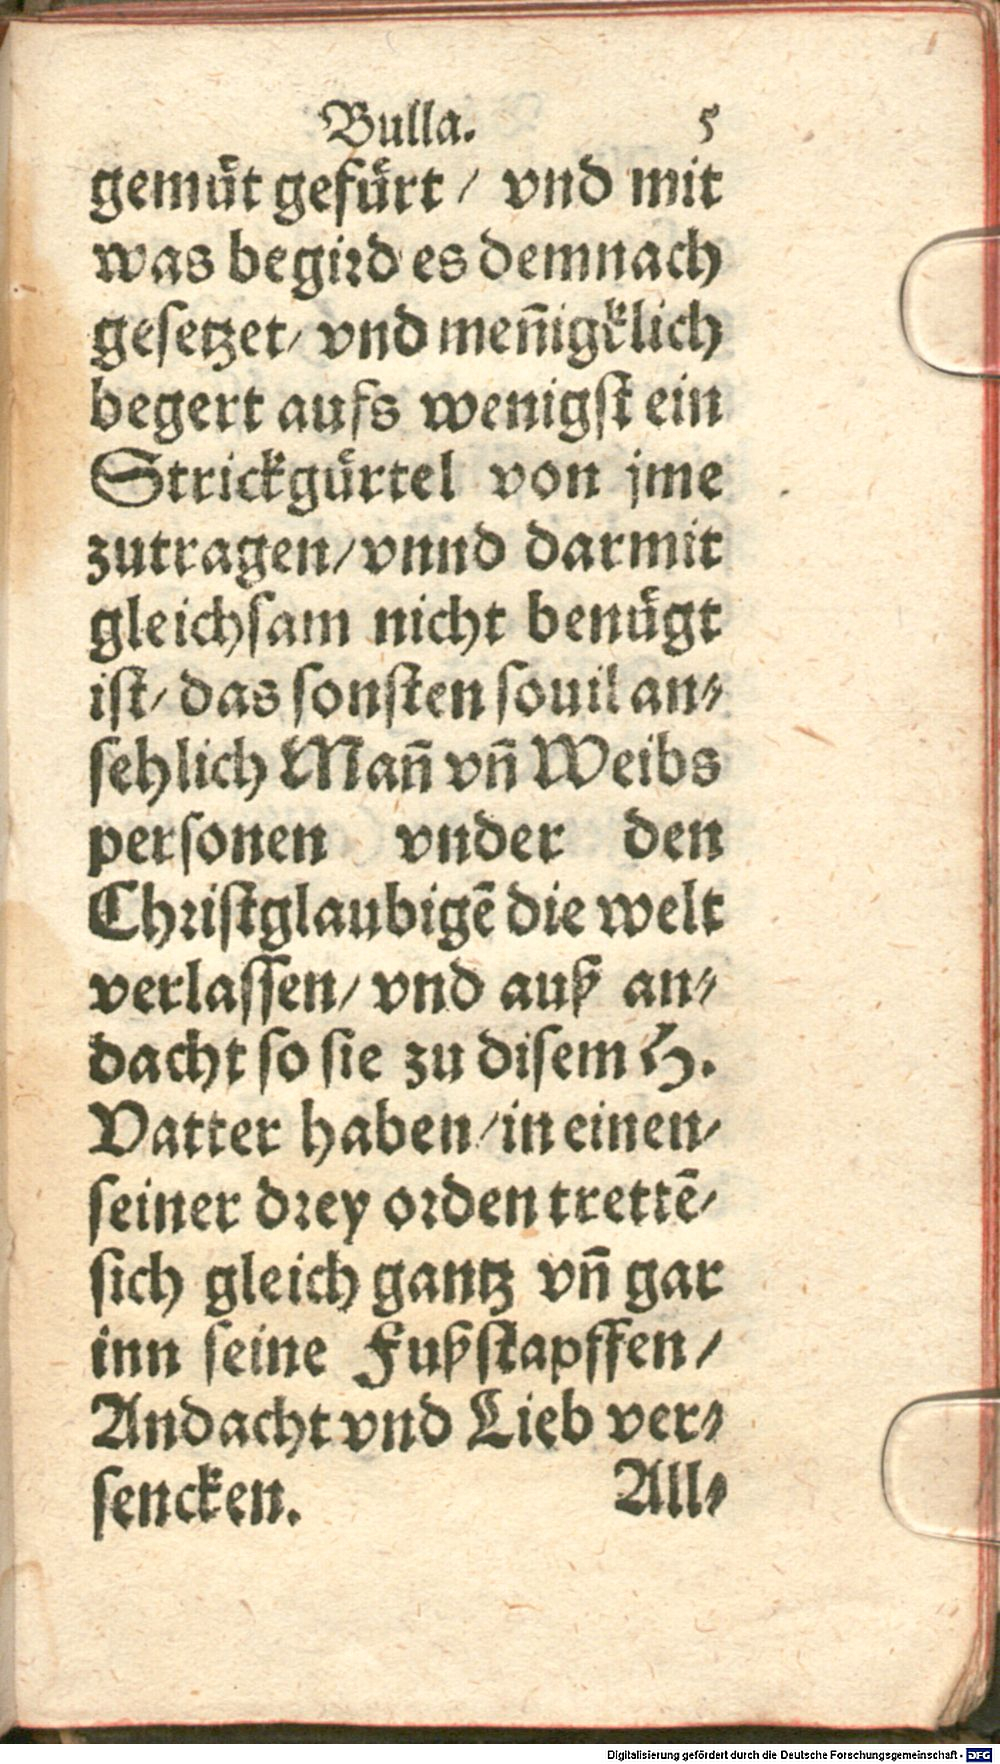 Bulla. 5
gemuͤt gefuͤrt / vnd mit
was begird es demnach
gesetzet / vnd men̄igklich
begert aufs wenigst ein
Strickguͤrtel von jme
zutragen / vnnd darmit
gleichsam nicht benuͤgt
ist / das sonsten souil an⸗
sehlich Man̄ vn̄ Weibs
personen vnder den
Christglaubigē die welt
verlassen / vnd auß an⸗
dacht so sie zu disem H.
Vatter haben / in einen /
seiner drey orden trettē /
sich gleich gantz vn̄ gar
inn seine Fußstapffen /
Andacht vnd Lieb ver⸗
sencken. All⸗
Digitalisierung gefördert durch die Deutsche Forschungsgemeinschaft - DFG